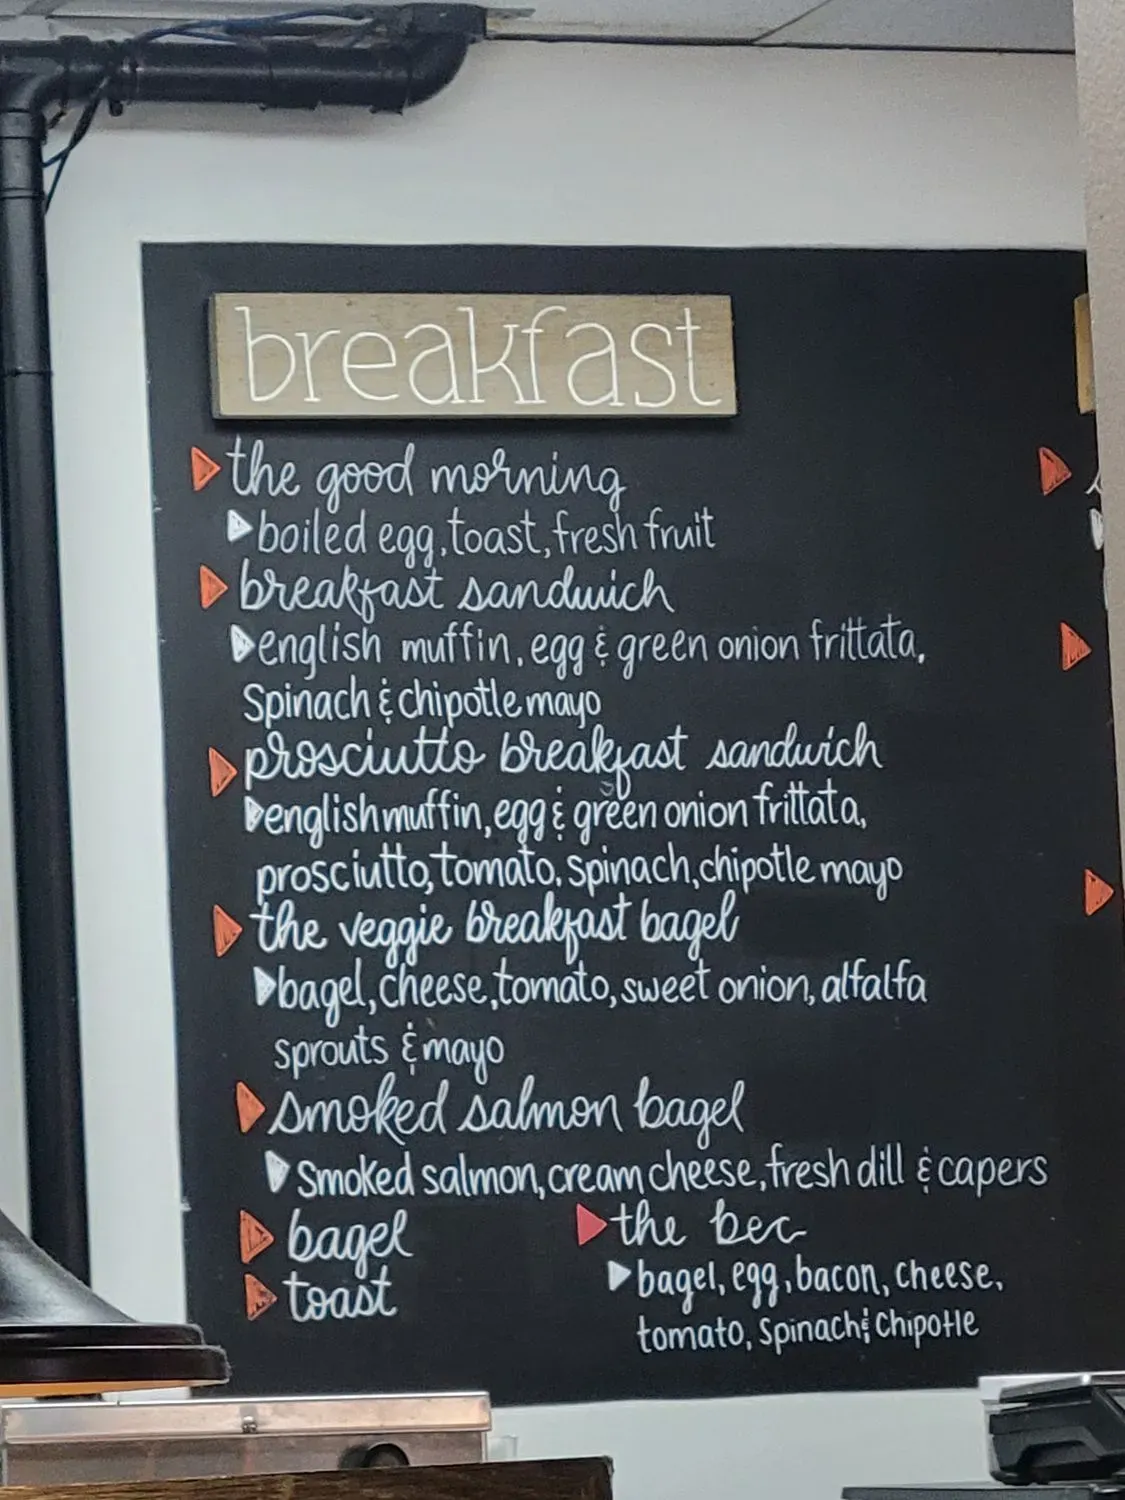 breakfast
the good morning
boiled egg, toast, fresh fruit
breakfast sandwich
english muffin, egg & green onion frittata,
Spinach & chipotle mayo
prosciutto breakfast sandwich
english muffin, egg & green onion frittata,
prosciutto, tomato, spinach, chipotle mayo
the veggie breakfast bagel
bagel, cheese, tomato, sweet onion, alfalfa
sprouts & mayo
smoked salmon bagel
Smoked salmon, cream cheese, fresh dill & capers
bagel
toast
the bec
bagel, egg, bacon, cheese,
tomato, Spinach & Chipotle